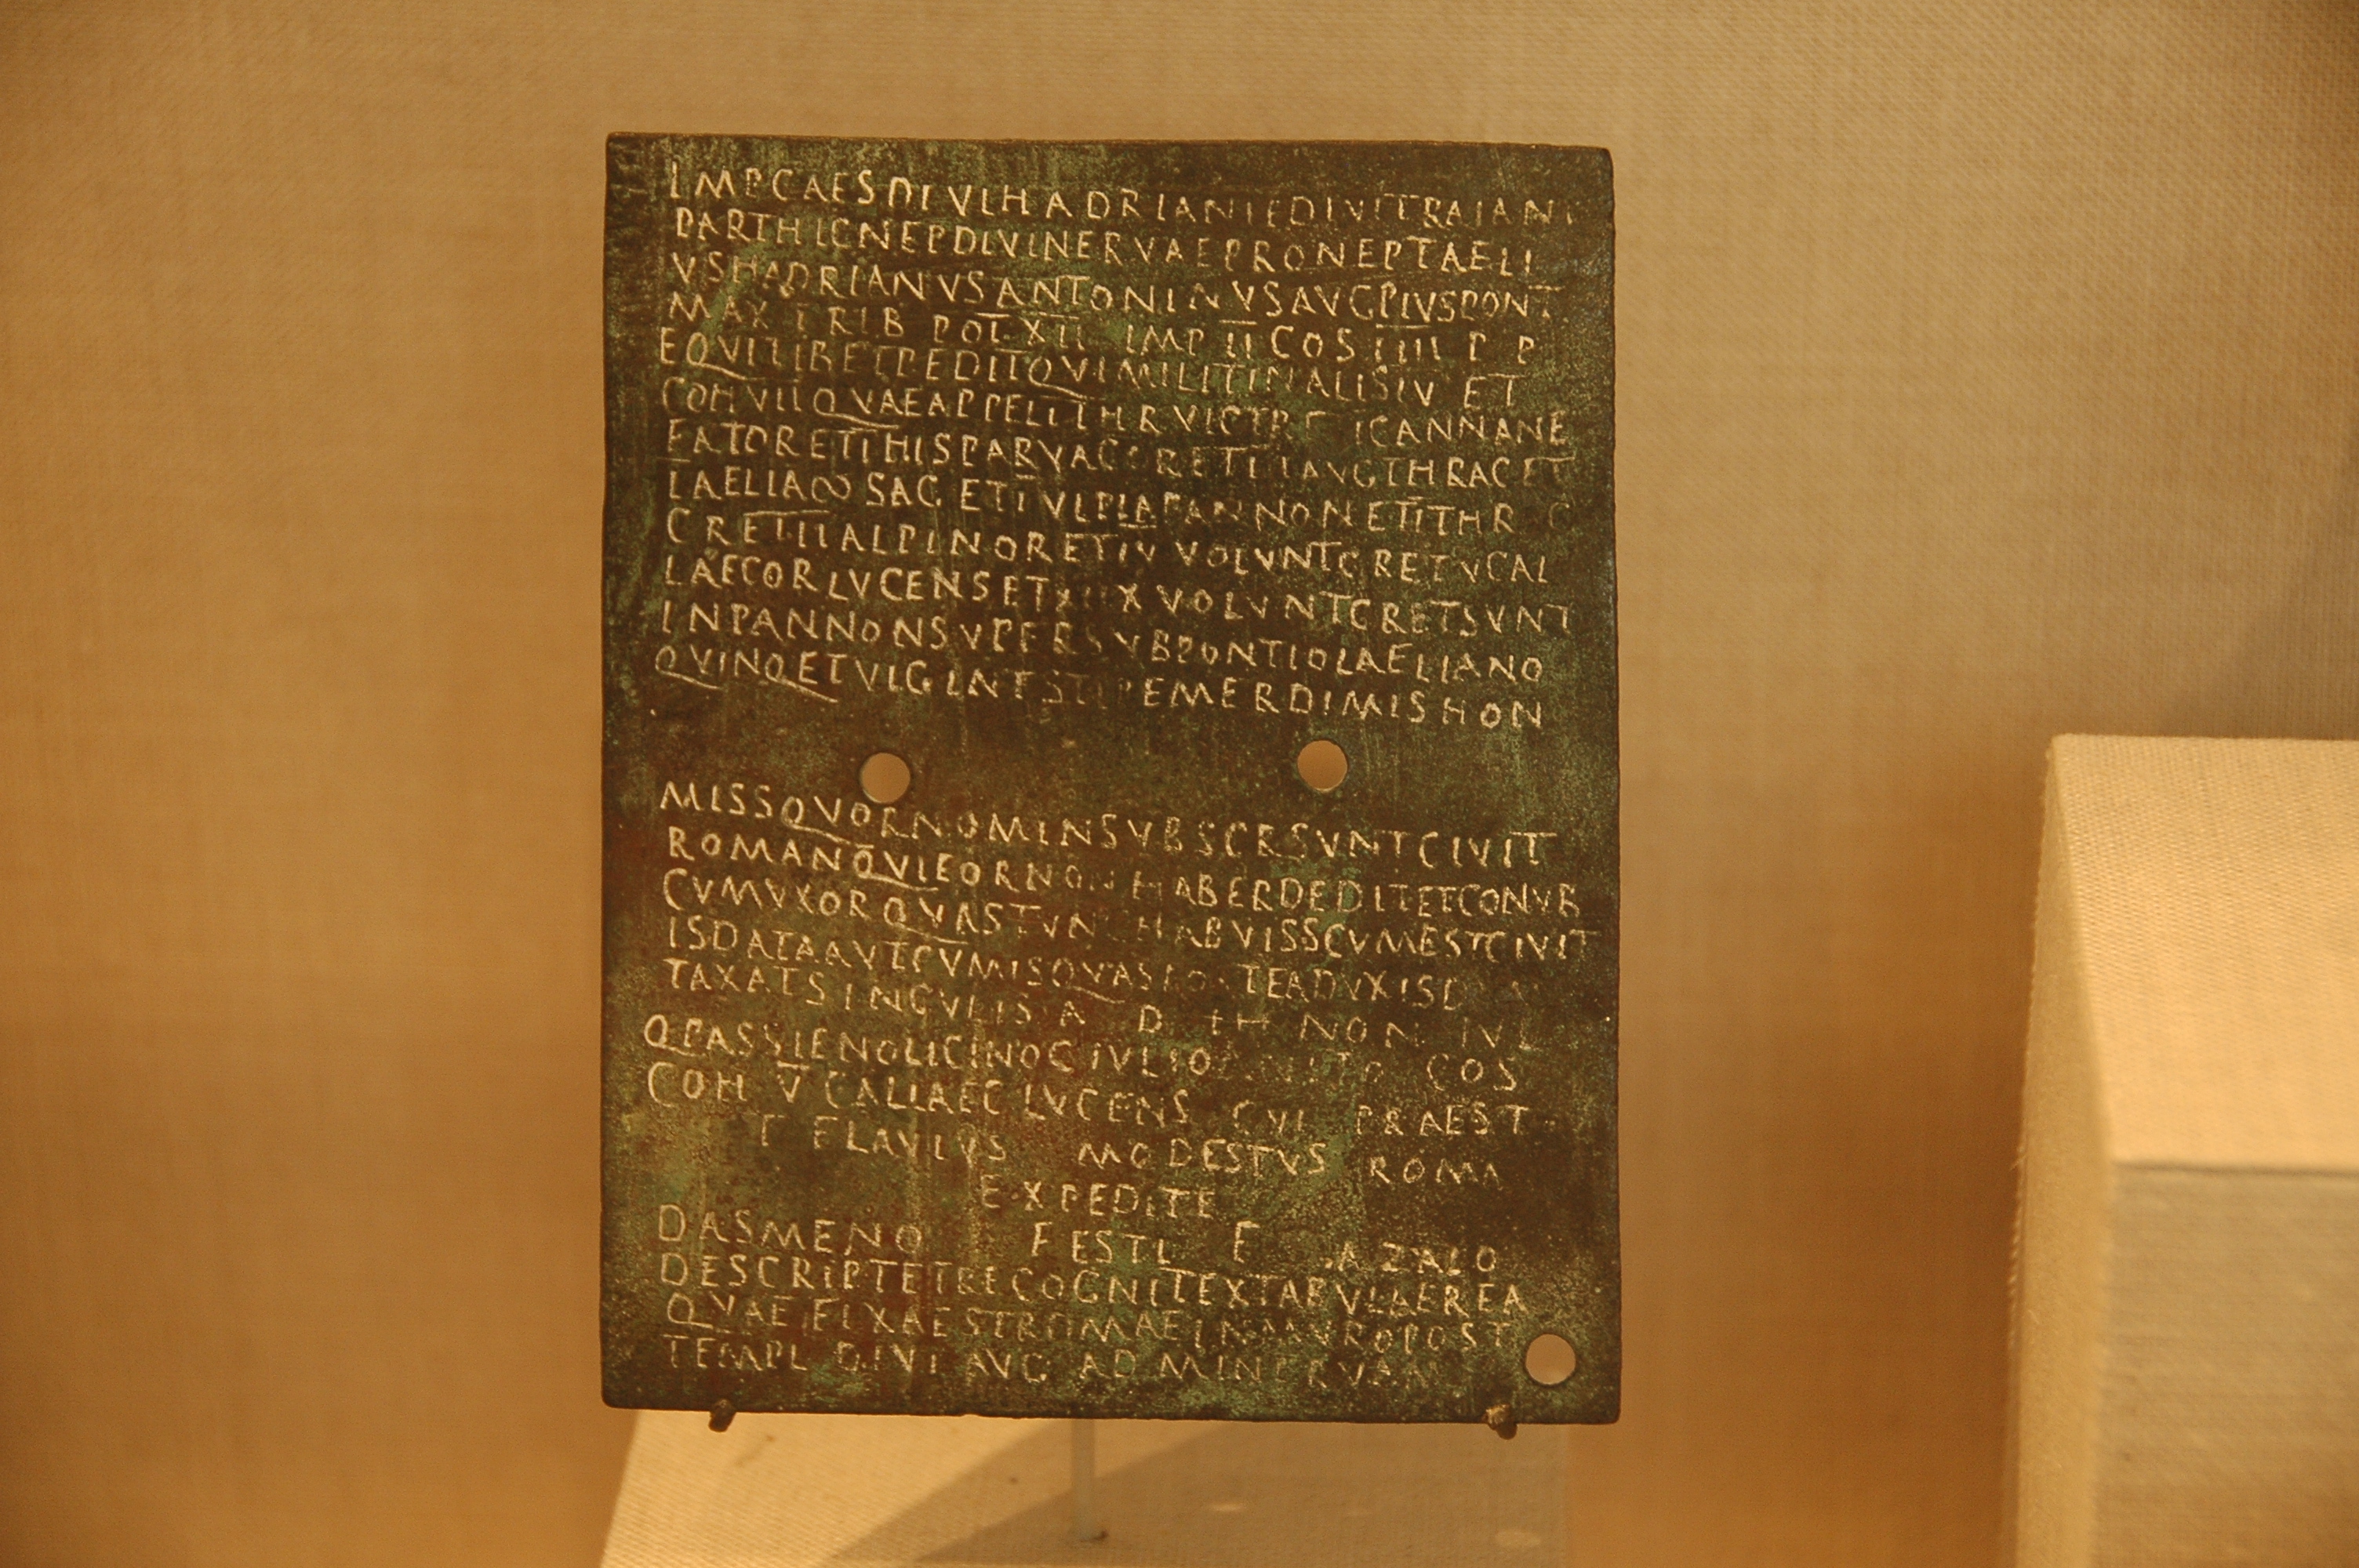 IMPCAESDIVIHADRIANIFDIVITRAIANI
PARTHICNEPDIVINERVAEPRONEPTAELI
VSHADRIANVSANTONINVSAVGPIVSPONT
MAX TRIB POT XII IMP II COS IIII P P
EQVITIBETPEDITQVIMILITINALISIV ET
COHVIIQVAEAPPELLTHRVICTRE ICANNANE
FATCRETIHISPARVACCRETIIAVGTHRACET
IAELIA∞ SAG ETIVLPIAPANNONETITHR C
CRETIIALPINORETIV VOLVNTCRETVCAL
LAECORLVCENSET X VOLVNTCRETSVNT
INPANNONSVPERSVBPONTIOLAELIANO
QVINQETVIGINTSTIPEMERDIMISHON
MISSQVORNOMINSVBSCRSVNTCIVIT
ROMANQVIEORNONHABERDEDITETCONVB
CVMVXORQVASTVNCHABVISSCVMESTCIVIT
ISDATAAVTCVMISQVAS TEADVXISD
TAXATSINGVLIS A D III NON IVL
QPASSIENOLICINOCIVLIO COS
COH V CALLAEC LVCENS CVI PRAEST
T FLAVIVS MODESTVS ROMA
EXPEDITE
DASMENO FESTI F AZALO
DESCRIPTETRECOGNITEXTABVLAEREA
QVAEFIXAESTROMAEINMVROPOST
TEMPL DIVI AVG AD MINERVAM